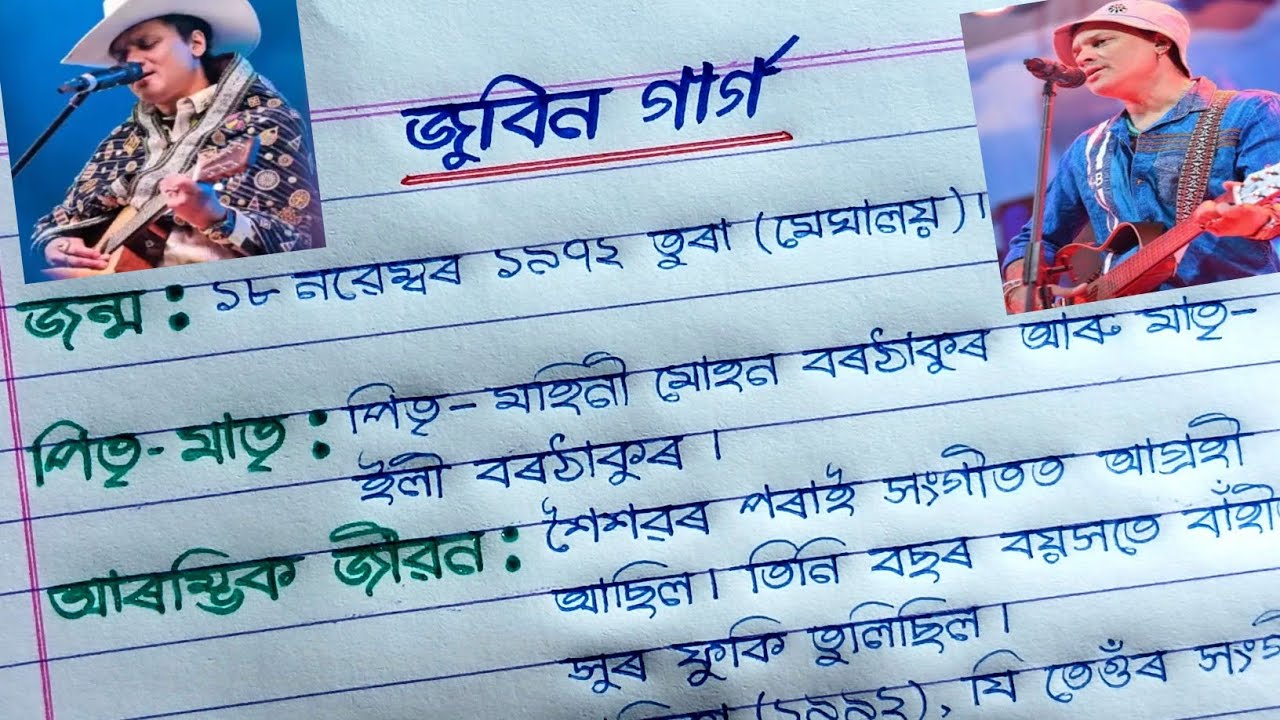 জুবিন গাৰ্গ
জন্ম : ১৮ নৱেম্বৰ ১৯৭২ তুৰা (মেঘালয়)।
পিতৃ-মাতৃ : পিতৃ- মহিনী মোহন বৰঠাকুৰ আৰু মাতৃ-
ইলী বৰঠাকুৰ ।
আৰম্ভিক জীৱন : শৈশৱৰ পৰাই সংগীতত আগ্ৰহী
আছিল। তিনি বছৰ বয়সতে
সুৰ ফুকি তুলিছিল।
(১৯৯২), যি তেওঁৰ